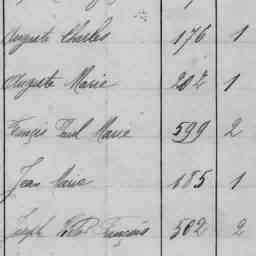 Auguste Charles 176 1
Auguste Marie 207 1
François Paul Marie 599 2
Jean Marie 185 1
Joseph François 502 2